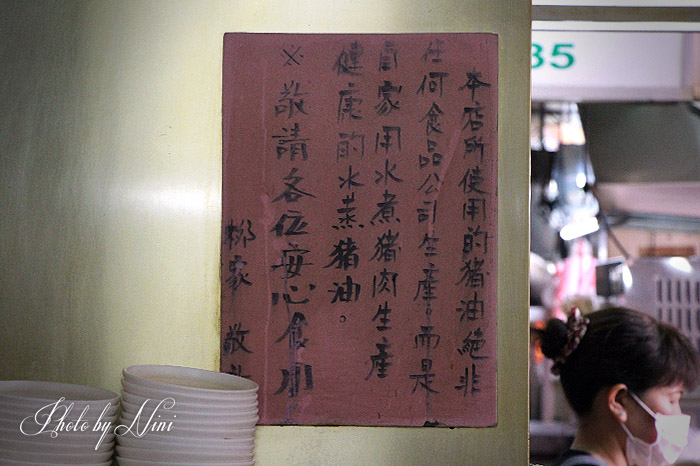 本店所使用的豬油絕非
任何食品公司生產。而是
自家用水煮豬肉生產
健康的水蒸豬油。
※敬請各位安心食用
柳家 敬
85
Photo by Nini